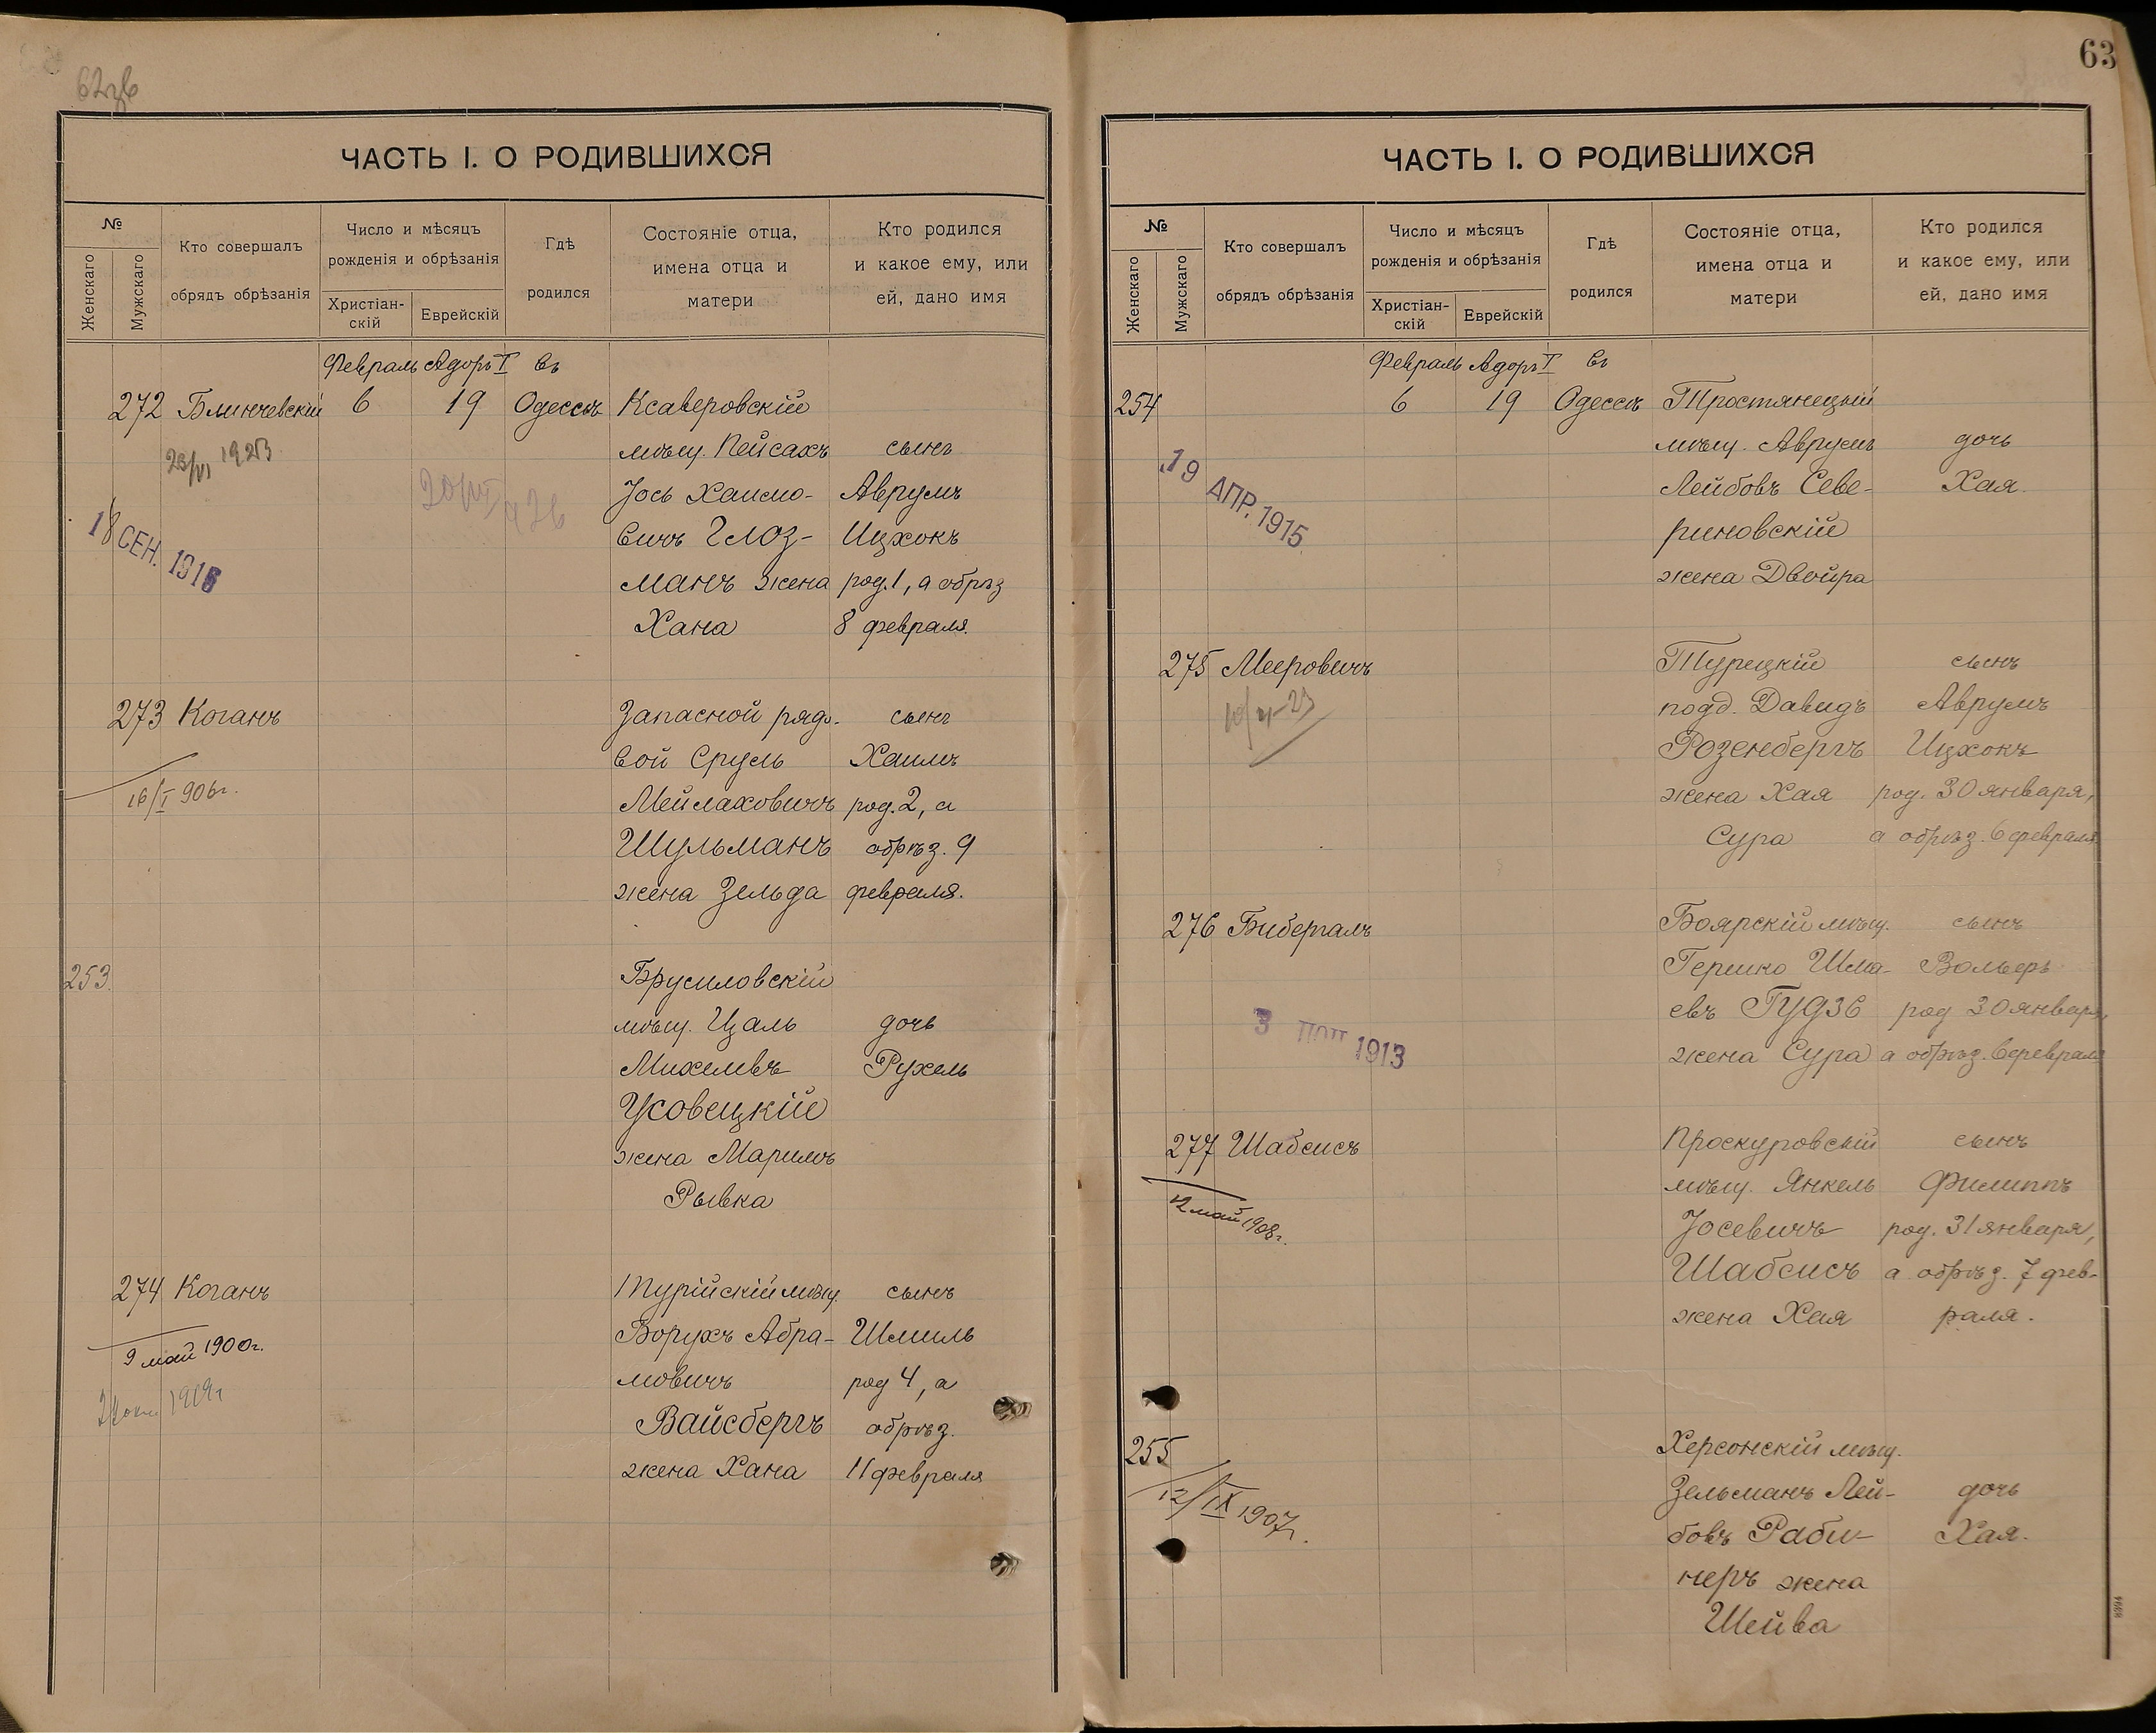 ЧАСТЬ I. О РОДИВШИХСЯ
№
Женскаго
Мужскаго
Кто совершалъ
обрядъ обрѣзанія
Число и мѣсяцъ
рожденія и обрѣзанія
Христіан-
скій
Еврейскій
Гдѣ
родился
Состояніе отца,
имена отца и
матери
Кто родился
и какое ему, или
ей, дано имя
Февраль Адоръ I въ
272 Блинчевскій 6 19 Одессѣ Ксаверовскій
мѣщ. Пейсахъ сынъ
Іось Хаимо- Аврумъ
вичъ Глоз- Ицхокъ
манъ жена род. 1, а обрѣз
Хана 8 февраля.
18 СЕН. 1916
273 Коганъ Запасной рядо- сынъ
вой Сруль Хаимъ
Мейлаховичъ род. 2, а
Шульманъ обрѣз. 9
жена Зельда февраля.
16/I 906г.
253. Брусиловскій
мѣщ. Цаль дочь
Михелевъ Рухель
Усовецкій
жена Маримъ
Рывка
274 Коганъ Турійскій мѣщ. сынъ
Борухъ Абра- Шмиль
мовичъ род 4, а
Вайсбергъ обрѣз.
жена Хана 11 февраля
9 май 1900г.
63
ЧАСТЬ I. О РОДИВШИХСЯ
№
Женскаго
Мужскаго
Кто совершалъ
обрядъ обрѣзанія
Число и мѣсяцъ
рожденія и обрѣзанія
Христіан-
скій
Еврейскій
Гдѣ
родился
Состояніе отца,
имена отца и
матери
Кто родился
и какое ему, или
ей, дано имя
Февраль Адоръ I въ
254 6 19 Одессѣ Тростянецкій
мѣщ. Аврумъ дочь
Лейбовъ Севе- Хая.
риновскій
жена Двойра
19 АПР. 1915
275 Мееровичъ Турецкій сынъ
подд. Давидъ Аврумъ
Розенбергъ Ицхокъ
жена Хая род. 30 января,
Сура а обрѣз. 6 февраля
276 Бибергалъ Боярскій мѣщ. сынъ
Гершко Шма- Вольеръ
евъ Гудзе род 30 января,
жена Сура а обрѣз. 6 февраля
3 1913
277 Шабсисъ Проскуровскій сынъ
мѣщ. Янкель Филиппъ
Іосевичъ род. 31 января,
Шабсисъ а обрѣз. 7 фев-
жена Хая раля.
12 май 1908г.
255 Херсонскій мѣщ.
Зельманъ Лей- дочь
бовъ Раби- Хая.
неръ жена
Шейва
12/IX 1907г.